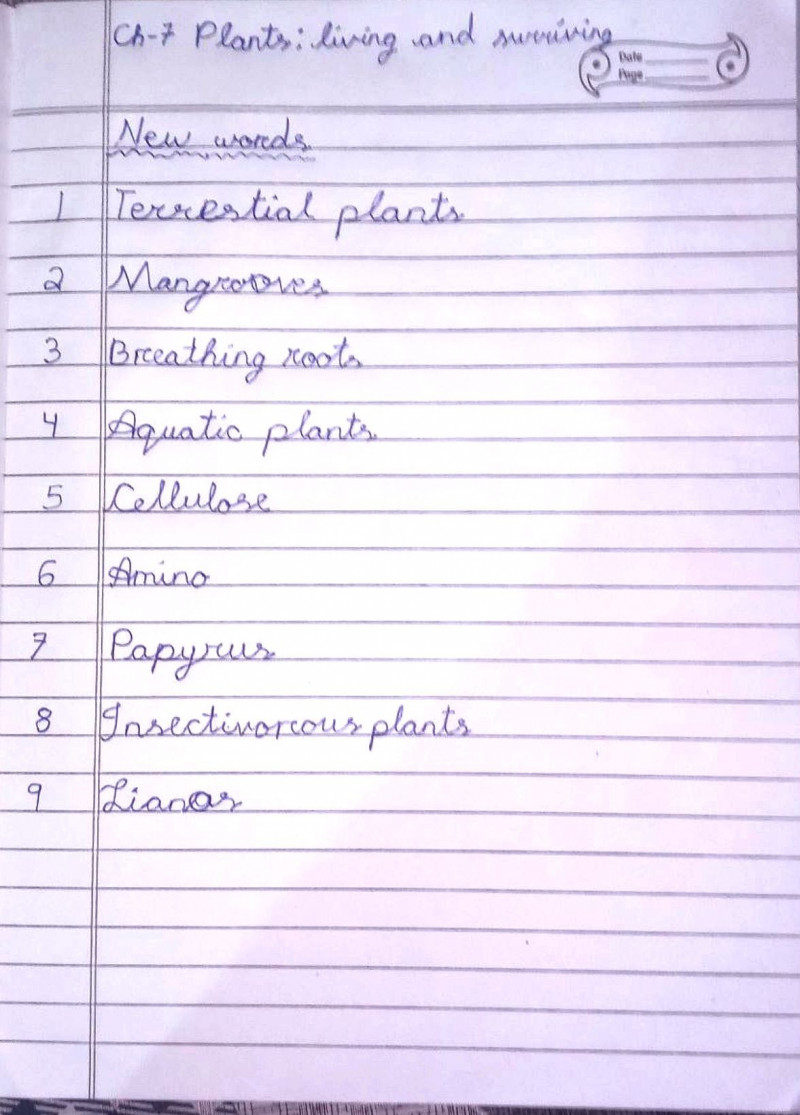 Ch-7 Plants: living and surviving
Date
Page
New words
1 Terrestial plants
2 Mangrooves
3 Breathing roots
4 Aquatic plants
5 Cellulose
6 Amino
7 Papyrus
8 Insectivorous plants
9 Lianas